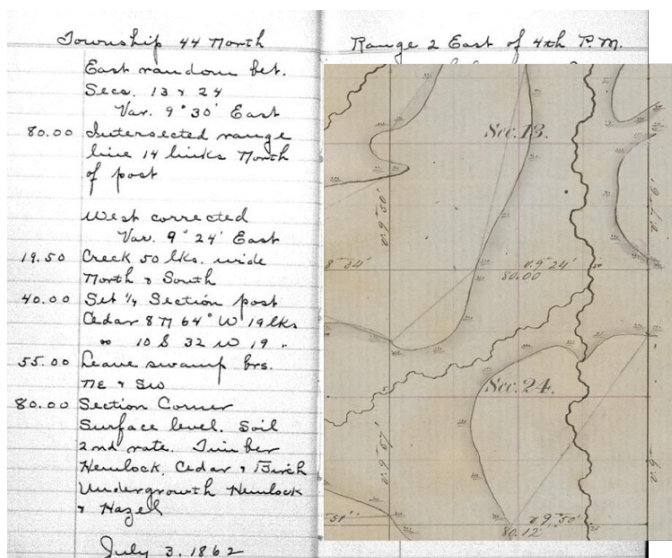 Township 44 North
Range 2 East of 4th P.M.
East random bet.
Secs. 13 & 24
Var. 9° 30' East
80.00 Intersected range
line 14 links North
of post
West corrected
Var. 9° 24' East
19.50 Creek 50 lks. wide
North & South
40.00 Set ¼ Section post
Cedar 8 N 64° W 19 lks
" 10 S 32 W 19 "
55.00 Leave swamp brs.
NE & SW
80.00 Section Corner
Surface level. Soil
2nd rate. Timber
Hemlock, Cedar & Birch
Undergrowth Hemlock
& Hazel
July 3. 1862
Sec. 13.
v.9°24'
80.00
Sec. 24.
v.9°50'
80.12